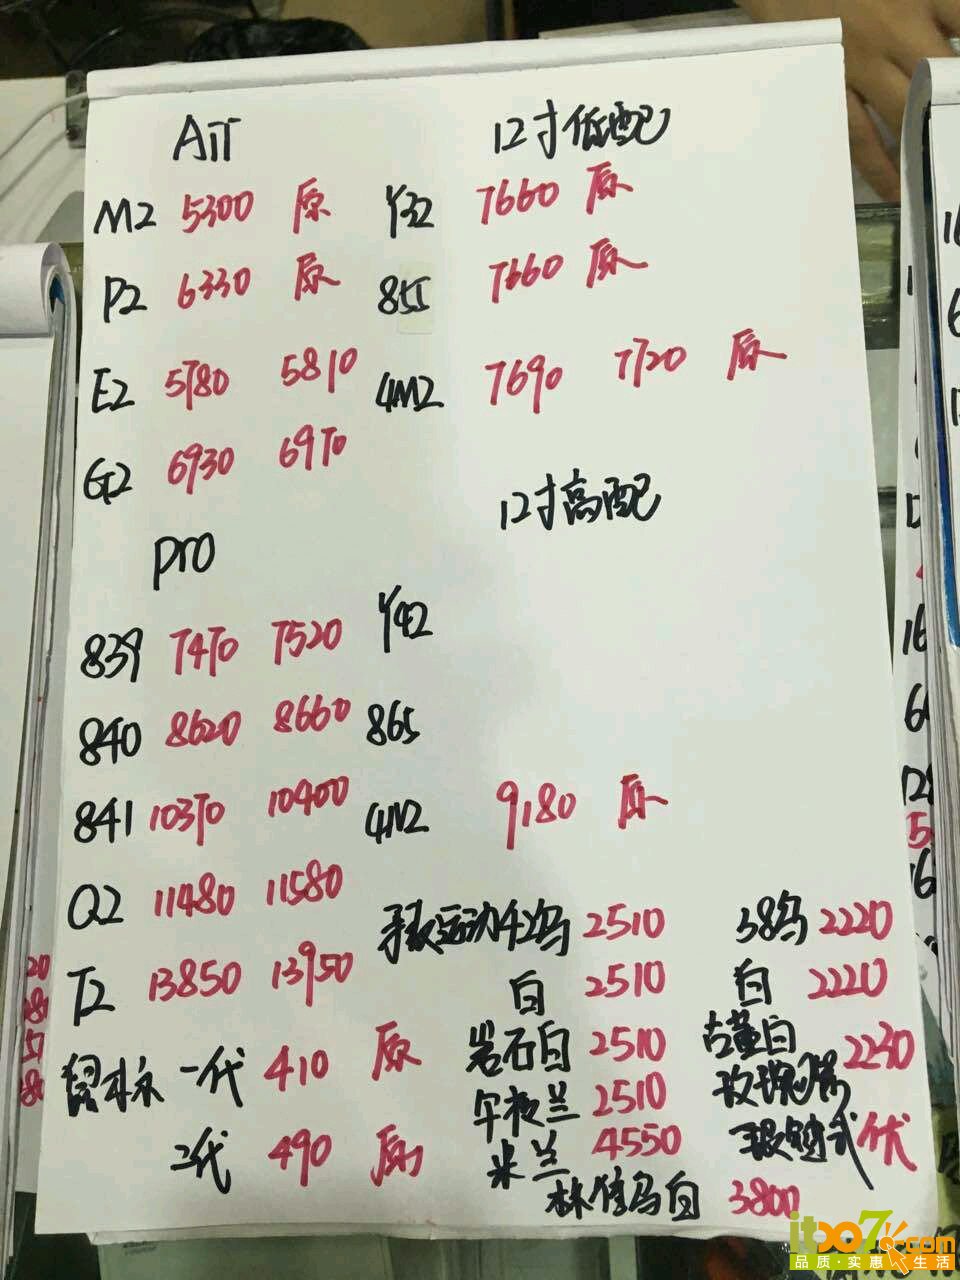 AiT
M2 5300 原
P2 6330 原
E2 5780 5810
G2 6930 6970
pro
839 7470 7520
840 8620 8660
841 10370 10400
Q2 11480 11580
T2 13850 13950
鼠标 一代 410 原
二代 490 原
12寸低配
Y32 7660 原
855 7660 原
4M2 7690 7720 原
12寸高配
Y42
865
4N2 9180 原
手表运动42乌 2510
白 2510
岩石白 2510
午夜兰 2510
米兰 4550
38乌 2220
白 2220
古董白 2230
玫瑰
链式 优
白 3800
itbo7.com
品质·实惠 生活